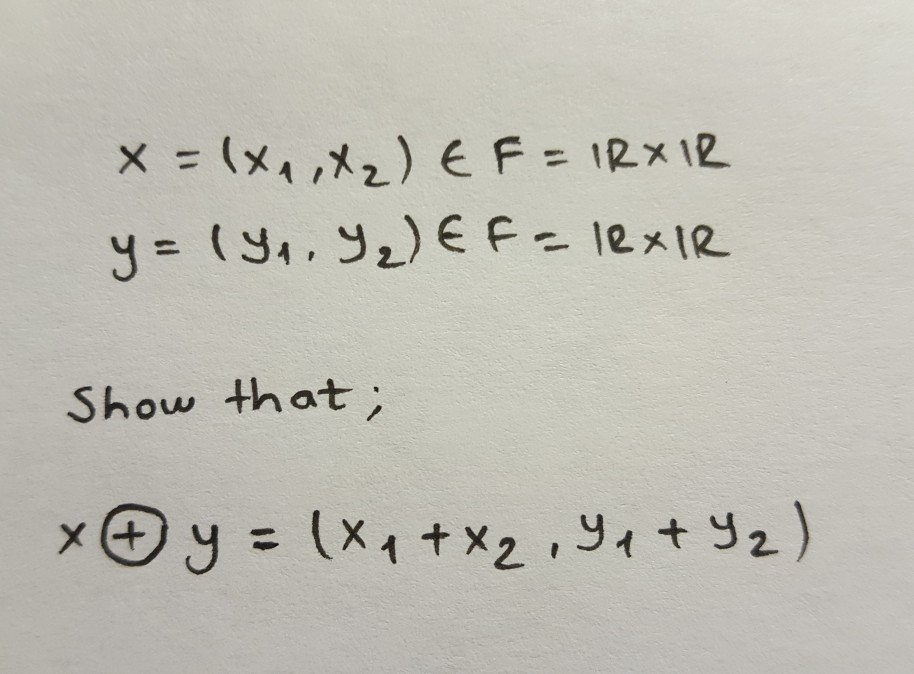 x = (x₁, x₂) ∈ F = ℝ×ℝ
y = (y₁, y₂) ∈ F = ℝ×ℝ
Show that;
x ⊕ y = (x₁ + x₂, y₁ + y₂)